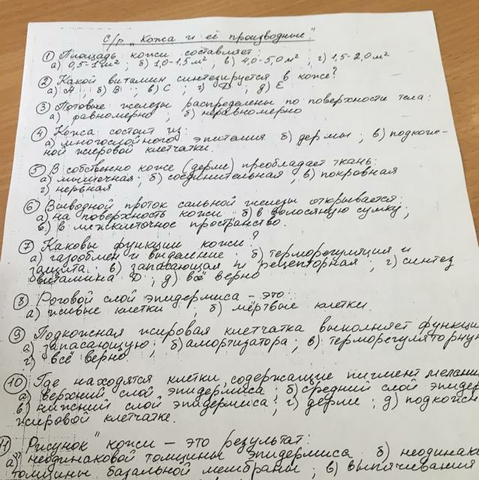 С/р „Кожа и её производные"
① Площадь кожи составляет:
а) 0,5-1 м²; б) 1,0-1,5 м²; в) 4,0-5,0 м²; г) 1,5-2,0 м²
② Какой витамин синтезируется в коже?
а) А; б) В; в) С; г) D; д) Е
③ Потовые железы распределены по поверхности тела:
а) равномерно; б) неравномерно
④ Кожа состоит из:
а) многослойного эпителия б) дермы; в) подкож-
ной жировой клетчатки.
⑤ В собственно коже (дерме) преобладает ткань:
а) мышечная; б) соединительная; в) покровная
г) нервная
⑥ Выводной проток сальной железы открывается:
а) на поверхность кожи б) в волосяную сумку;
в) в межклеточное пространство.
⑦ Каковы функции кожи?
а) газообмен и выделение; б) терморегуляция и
защита; в) запасающая и рецепторная; г) синтез
витамина D; д) всё верно
⑧ Роговой слой эпидермиса - это:
а) живые клетки; б) мёртвые клетки.
⑨ Подкожная жировая клетчатка выполняет функци
а) запасающую; б) амортизатора; в) терморегуляторную
г) всё верно.
⑩ Где находятся клетки, содержащие пигмент мелани
а) верхний слой эпидермиса; б) средний слой эпидер
в) нижний слой эпидермиса; г) дерме; д) подкожн
жировой клетчатке.
11 „Рисунок" кожи - это результат:
а) неодинаковой толщины эпидермиса б) неодинак
толщины базальной мембраны; в) выпячивания